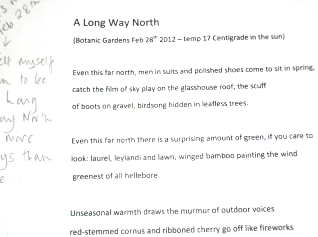 A Long Way North
(Botanic Gardens Feb 28th 2012 – temp 17 Centigrade in the sun)
Even this far north, men in suits and polished shoes come to sit in spring,
catch the film of sky play on the glasshouse roof, the scuff
of boots on gravel, birdsong hidden in leafless trees.
Even this far north there is a surprising amount of green, if you care to
look: laurel, leylandi and lawn, winged bamboo painting the wind
greenest of all hellebore.
Unseasonal warmth draws the murmur of outdoor voices
red-stemmed cornus and ribboned cherry go off like fireworks
28th
myself
to be
Long
North
than